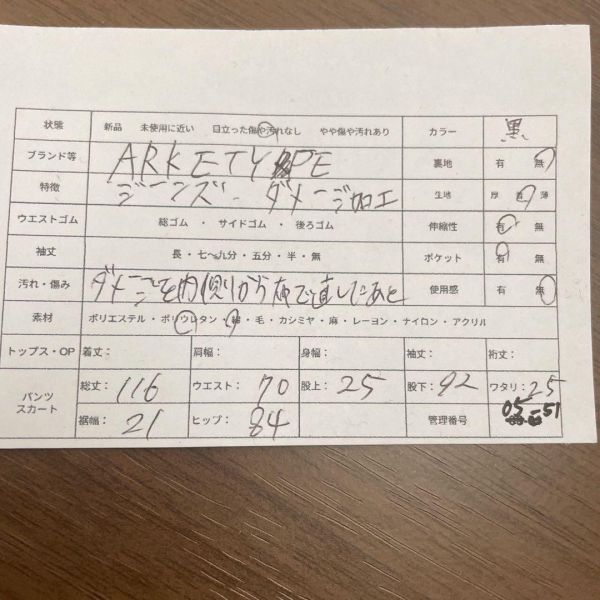 状態 新品 未使用に近い 目立った傷や汚れなし やや傷や汚れあり カラー 黒
ブランド等 ARKETYPE 裏地 有 無
特徴 ジーンズ、ダメージ加工 生地 厚 普 薄
ウエストゴム 総ゴム ・ サイドゴム ・ 後ろゴム 伸縮性 有 無
袖丈 長・七〜九分・五分・半・無 ポケット 有 無
汚れ・傷み ダメージを内側から布で直したあと 使用感 有 無
素材 ポリエステル・ポリウレタン・綿・毛・カシミヤ・麻・レーヨン・ナイロン・アクリル
トップス・OP 着丈: 肩幅: 身幅: 袖丈: 裄丈:
パンツ スカート 総丈: 116 ウエスト: 70 股上: 25 股下: 92 ワタリ: 25
裾幅: 21 ヒップ: 84 管理番号 05-51